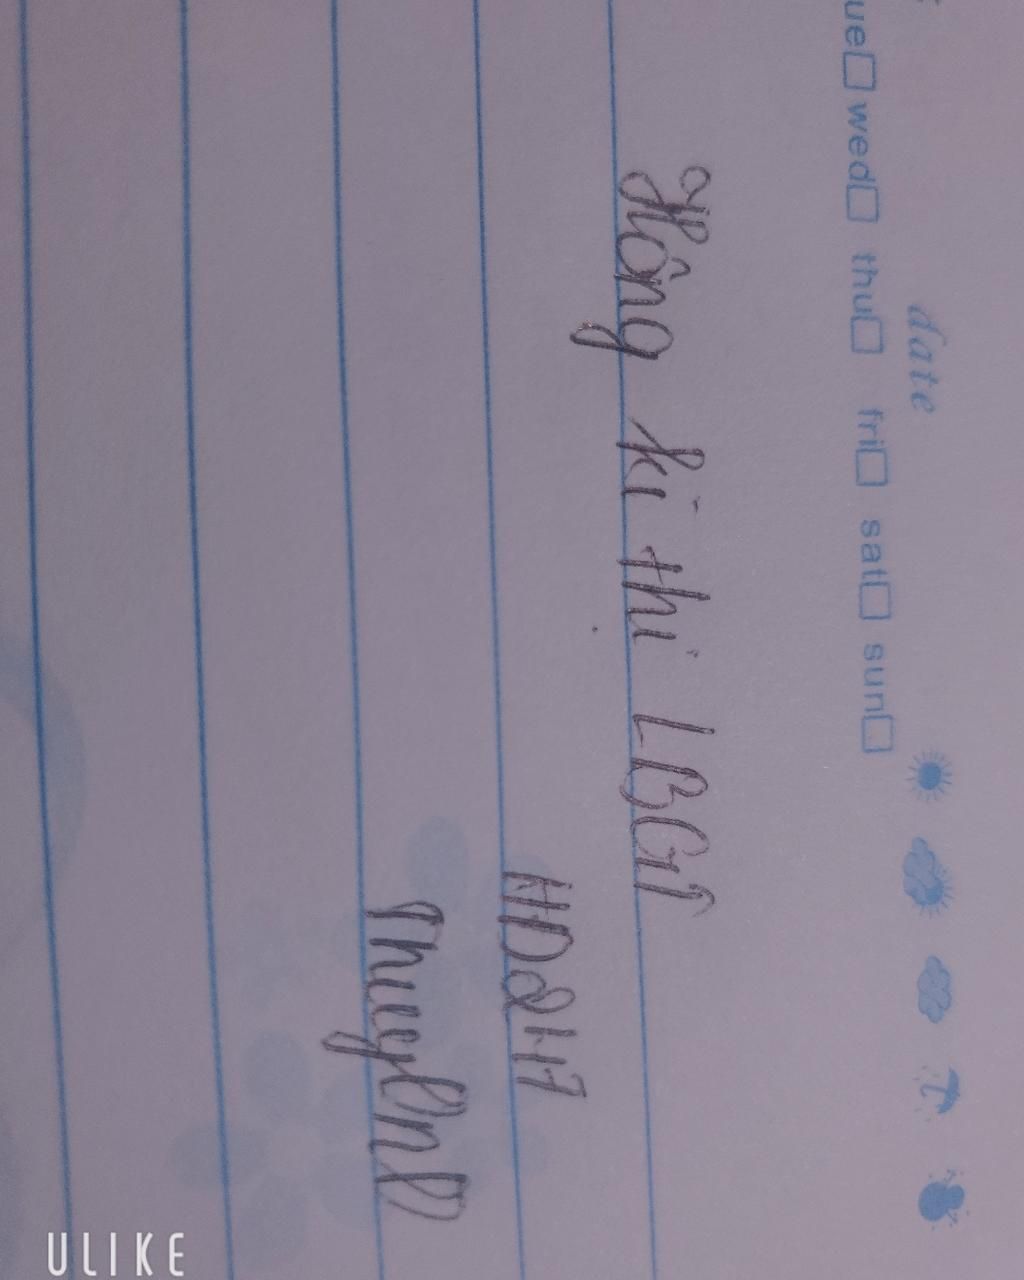 date
ue wed thu fri sat sun
Hông kì thị LBGT
HD2417
ULIKE